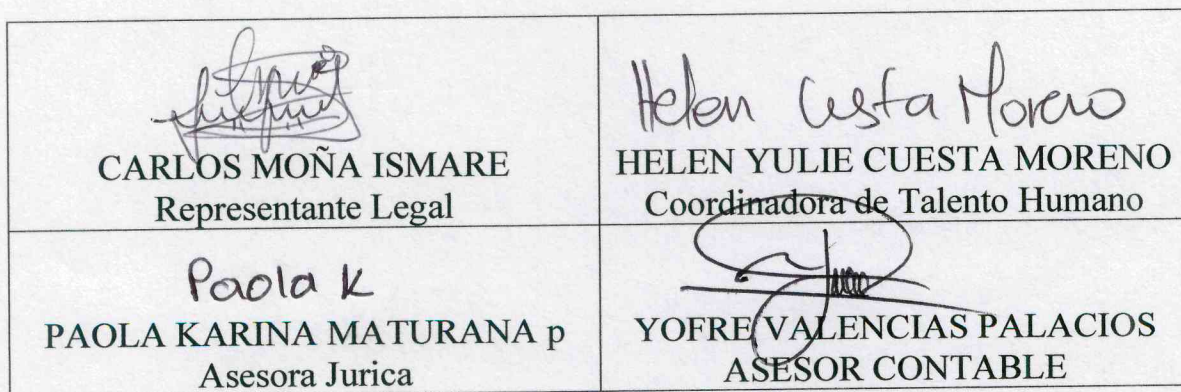 Helen Cuesta Moreno
CARLOS MOÑA ISMARE
Representante Legal
HELEN YULIE CUESTA MORENO
Coordinadora de Talento Humano
Paola K
PAOLA KARINA MATURANA p
Asesora Jurica
YOFRE VALENCIAS PALACIOS
ASESOR CONTABLE